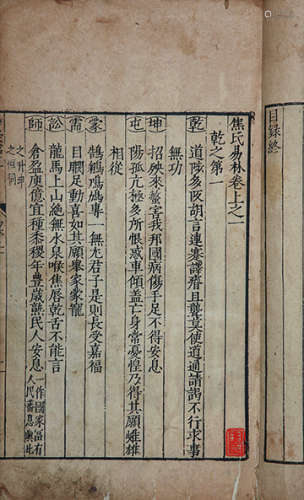 目錄終
焦氏易林卷上之一
乾之第一
乾 道陟多阪胡言連謇譯瘖且聾莫使道通請謁不行求事
無功
坤 招殃來螫害我邦國病傷手足不得安息
屯 陽孤亢極多所恨惑車傾蓋亡身常憂惶乃得其願雌雄
相從
蒙 鵠鵴鳲鳩專一無尤君子是則長受嘉福
需 目瞤足動喜如其願舉家蒙寵
訟 龍馬上山絕無水泉喉焦唇乾舌不能言
師 倉盈庾億宜種黍稷年豐歲熟民人安息